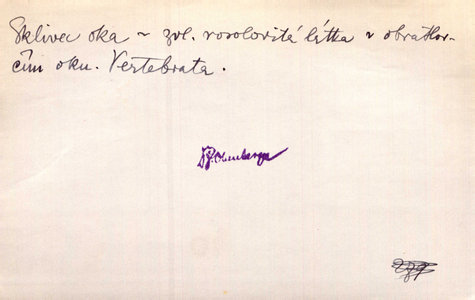 Sklivec oka ~ zvl. rosolovitá látka v obratlov-
čím oku. Vertebrata.